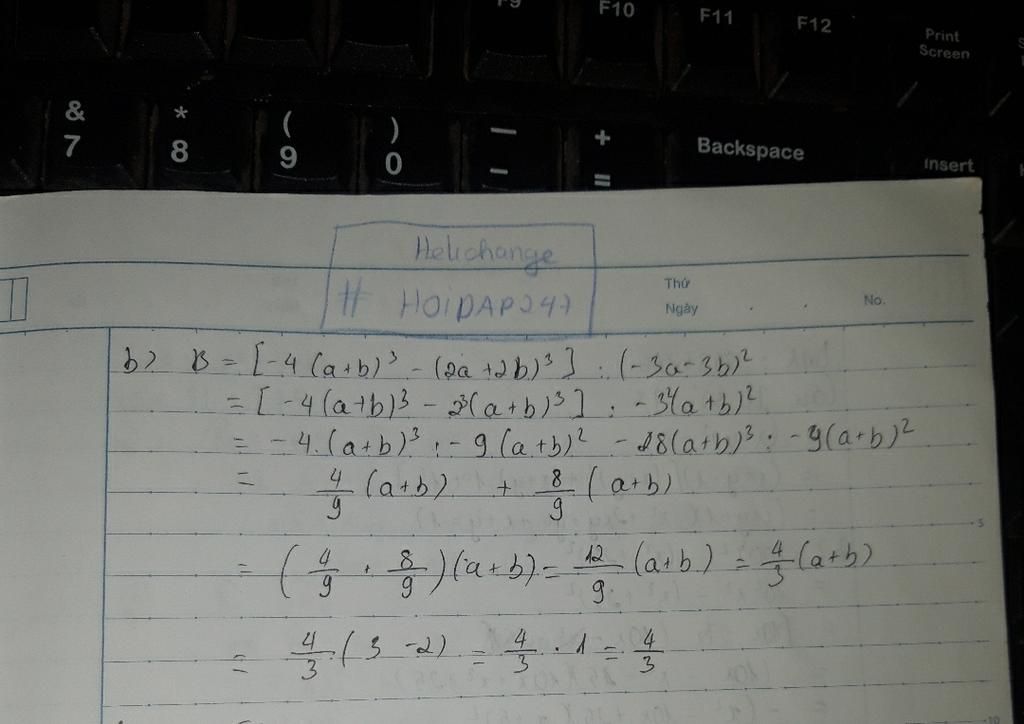 F9 F10 F11 F12 Print Screen
& 7 * 8 ( 9 ) 0 — - + = Backspace Insert
Helichange
# HOIDAP247
Thứ
Ngày
No.
b) B = [-4(a+b)³ - (2a+2b)³] : (-3a-3b)²
= [-4(a+b)³ - 2³(a+b)³] : -3²(a+b)²
= -4.(a+b)³ : -9(a+b)² - 8(a+b)³ : -9(a+b)²
= 4/9 (a+b) + 8/9 (a+b)
= (4/9 + 8/9)(a+b) = 12/9 (a+b) = 4/3 (a+b)
= 4/3 . (3 - 2) = 4/3 . 1 = 4/3
5
10